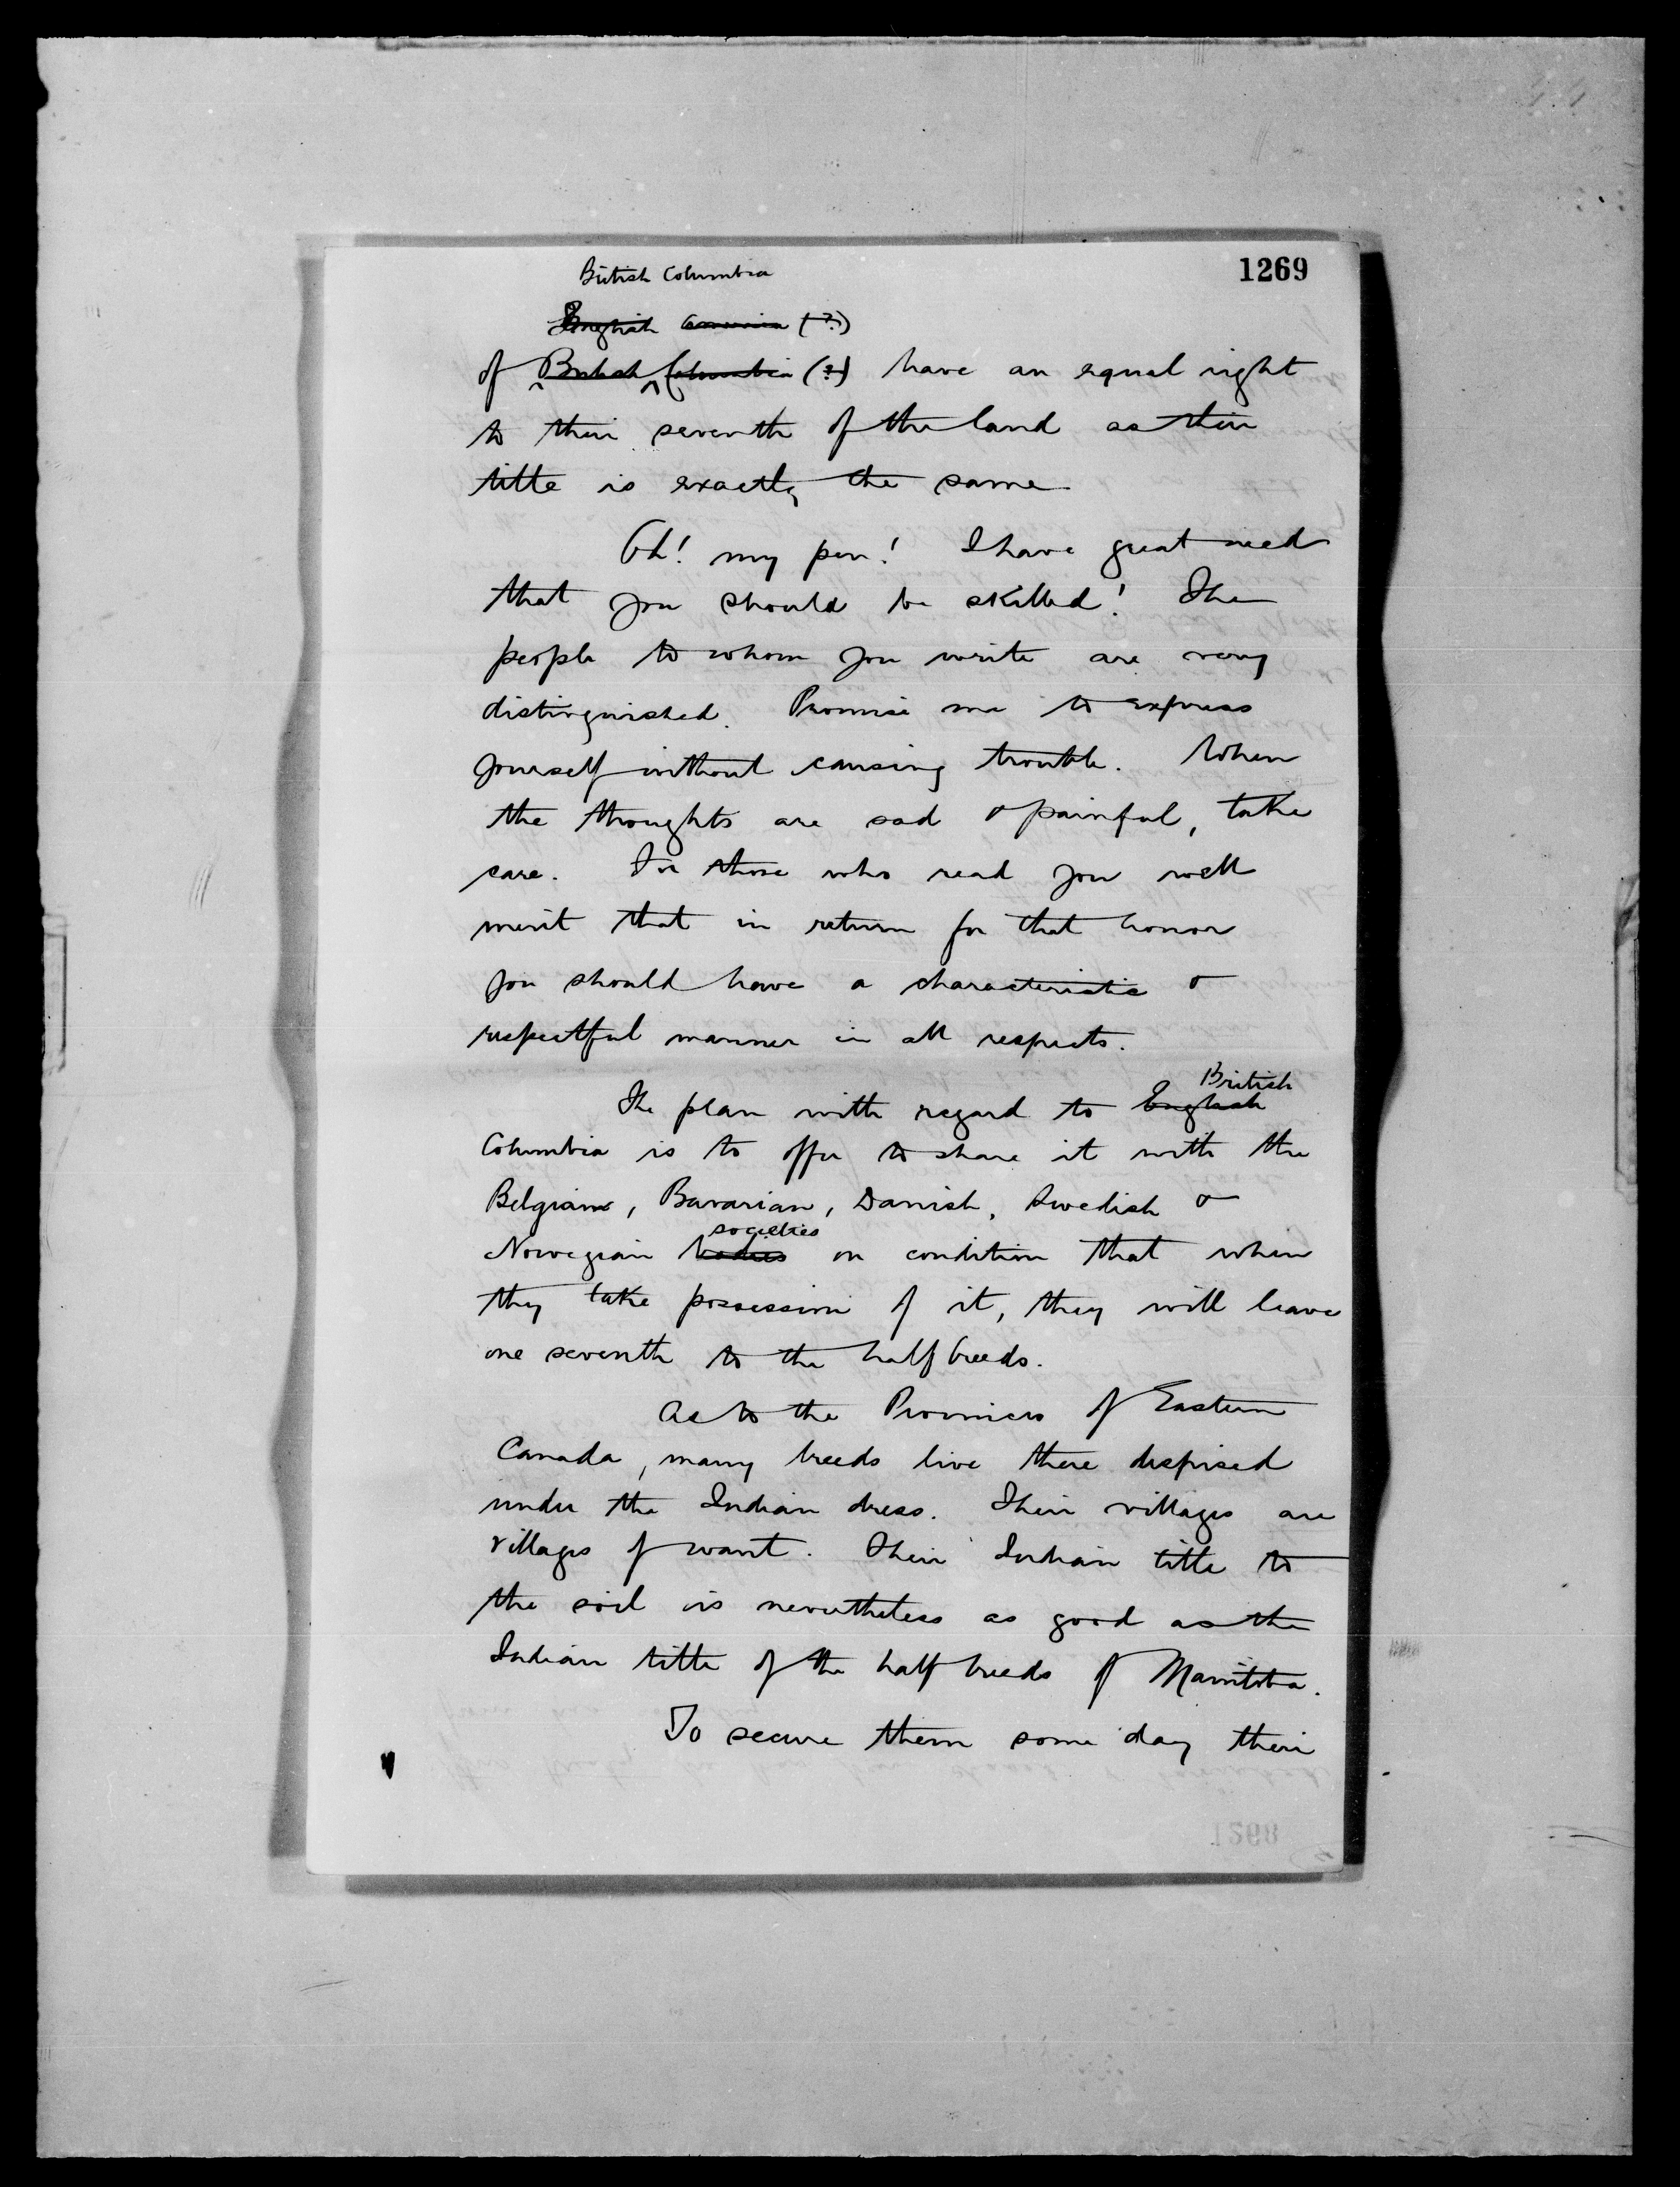 1269
British Columbia
English (?)
of British Columbia (?) have an equal right
to their seventh of the land as their
title is exactly the same
Oh! my pen! I have great need
that you should be skilled! The
people to whom you write are very
distinguished. Promise me to express
yourself without causing trouble. When
the thoughts are sad & painful, take
care. For those who read you well
merit that in return for that honor
you should have a characteristic &
respectful manner in all respects.
British
The plan with regard to English
Columbia is to offer to share it with the
Belgians, Bavarian, Danish, Swedish &
societies
Norwegian bodies on condition that when
they take possession of it, they will leave
one seventh to the half breeds.
As to the Provinces of Eastern
Canada, many breeds live there despised
under the Indian dress. Their villages are
villages of want. Their Indian title to
the soil is nevertheless as good as the
Indian title of the half breeds of Manitoba.
To secure them some day their